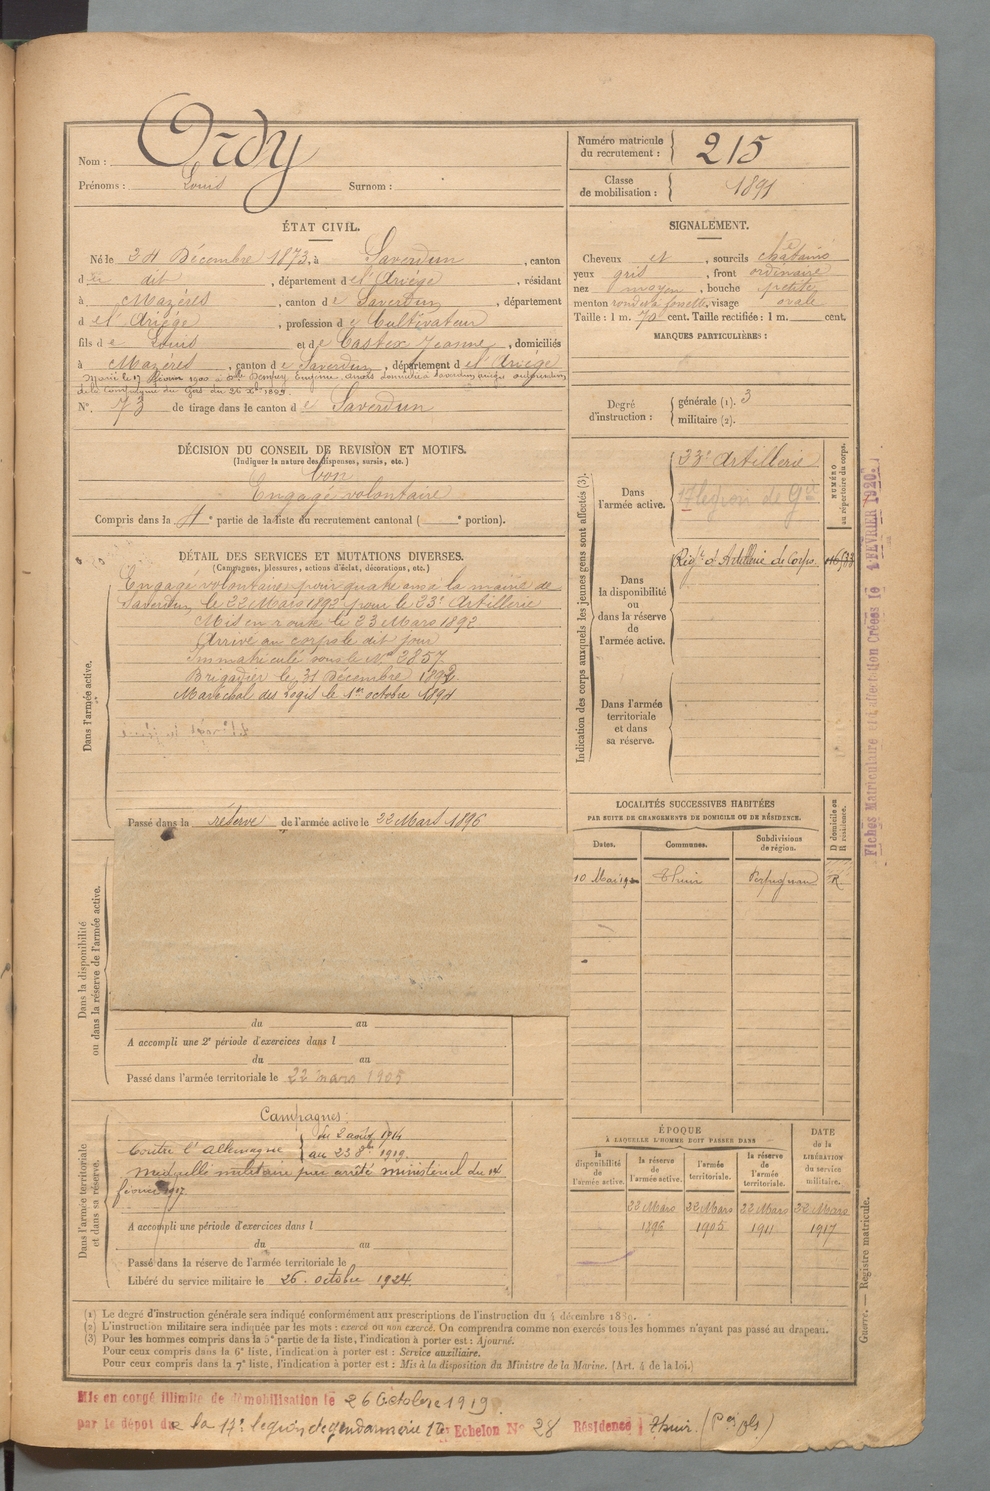 Nom : Ordy
Prénoms : Louis Surnom :
Numéro matricule du recrutement : 215
Classe de mobilisation : 1891
ÉTAT CIVIL.
Né le 24 Décembre 1873, à Saverdun, canton
du dit, département de l'Ariége, résidant
à Mazéres, canton de Saverdun, département
de l'Ariége, profession de Cultivateur
fils de Louis et de Castex Jeanne, domiciliés
à Mazéres, canton de Saverdun, département de l'Ariége
Marié le 17 février 1900 à
N° 73 de tirage dans le canton de Saverdun
SIGNALEMENT.
Cheveux et, sourcils châtains
yeux gris, front ordinaire
nez moyen, bouche petite
menton rond à fossette, visage ovale
Taille : 1 m. 70 cent. Taille rectifiée : 1 m. cent.
MARQUES PARTICULIÈRES :
Degré d'instruction : générale (1). 3
militaire (2).
DÉCISION DU CONSEIL DE REVISION ET MOTIFS.
(Indiquer la nature des dispenses, sursis, etc.)
bon
Engagé volontaire
Compris dans la 4e partie de la liste du recrutement cantonal ( e portion).
DÉTAIL DES SERVICES ET MUTATIONS DIVERSES.
(Campagnes, blessures, actions d'éclat, décorations, etc.)
Dans l'armée active.
Engagé volontaire pour quatre ans à la mairie de
Saverdun le 22 Mars 1892 pour le 23e Artillerie
Mis en route le 23 Mars 1892
Arrivé au corps le dit jour
Immatriculé sous le No 3857.
Brigadier le 31 Décembre 1892
Maréchal des Logis le 1er octobre 1894
Passé dans la réserve de l'armée active le 22 Mars 1896
Indication des corps auxquels les jeunes gens sont affectés (3).
NUMÉRO au répertoire du corps.
Dans l'armée active.
33e Artillerie
17 légion de Gie
Dans la disponibilité ou dans la réserve de l'armée active.
Régt d'Artillerie de Corps.
Dans l'armée territoriale et dans sa réserve.
LOCALITÉS SUCCESSIVES HABITÉES
PAR SUITE DE CHANGEMENTS DE DOMICILE OU DE RÉSIDENCE.
D domicile ou R résidence.
Dates. Communes. Subdivisions de région.
10 Mai Thuir Perpignan R
Fiches Matriculaire et d'affectation Créées le 4 FÉVRIER 1920.
Dans la disponibilité ou dans la réserve de l'armée active.
du au
A accompli une 2e période d'exercices dans l
du au
Passé dans l'armée territoriale le 22 mars 1905
Dans l'armée territoriale et dans sa réserve.
Campagnes
Contre l'Allemagne du 2 août 1914
au 23 8bre 1919.
Médaille militaire par arrêté ministériel du 14
février 1917.
A accompli une période d'exercices dans l
du au
Passé dans la réserve de l'armée territoriale le
Libéré du service militaire le 26 octobre 1924.
ÉPOQUE
À LAQUELLE L'HOMME DOIT PASSER DANS
DATE de la LIBÉRATION du service militaire.
la disponibilité de l'armée active. la réserve de l'armée active. l'armée territoriale. la réserve de l'armée territoriale.
22 Mars 22 Mars 22 Mars 22 Mars
1896 1905 1911 1917
Guerre. — Registre matricule.
(1) Le degré d'instruction générale sera indiqué conformément aux prescriptions de l'instruction du 4 décembre 1889.
(2) L'instruction militaire sera indiquée par les mots : exercé ou non exercé. On comprendra comme non exercés tous les hommes n'ayant pas passé au drapeau.
(3) Pour les hommes compris dans la 5e partie de la liste, l'indication à porter est : Ajourné.
Pour ceux compris dans la 6e liste, l'indication à porter est : Service auxiliaire.
Pour ceux compris dans la 7e liste, l'indication à porter est : Mis à la disposition du Ministre de la Marine. (Art. 4 de la loi.)
Mis en congé illimité de démobilisation le 26 Octobre 1919.
par le dépôt de la 17e légion de gendarmerie Echelon No 28 Résidence Thuir. (Pees Ories)